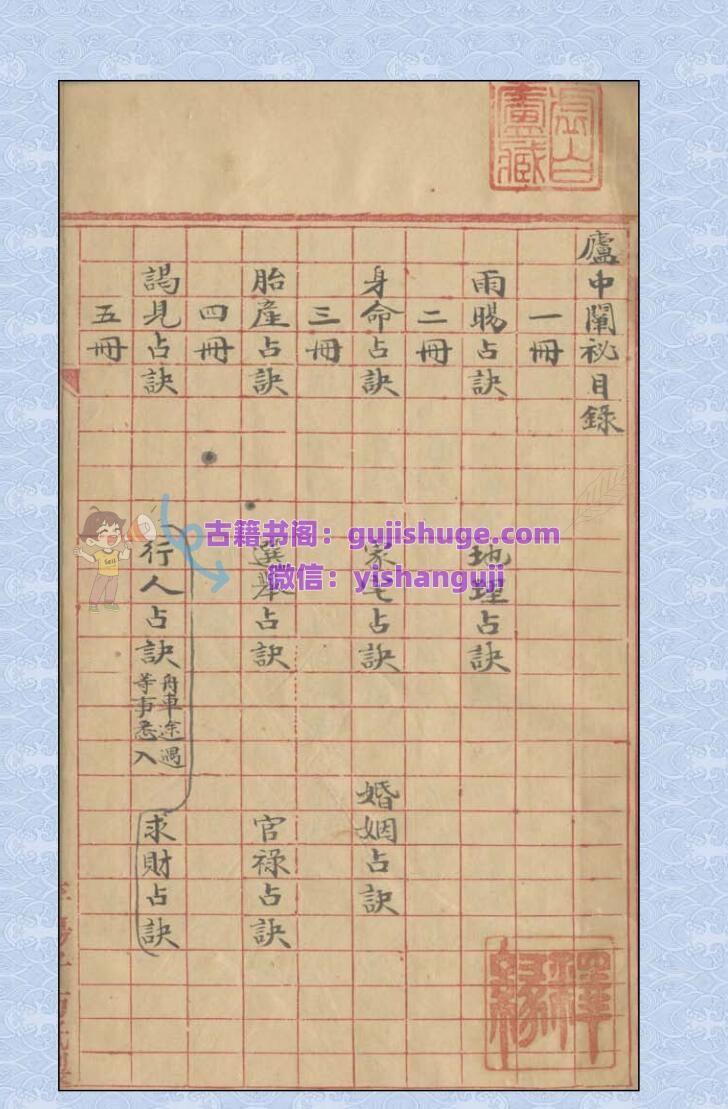 廬中闡祕目錄
一冊
雨暘占訣
地理占訣
二冊
身命占訣
家宅占訣
婚姻占訣
三冊
胎產占訣
選舉占訣
官祿占訣
四冊
謁見占訣
行人占訣
舟車途遇
等事悉入
求財占訣
五冊
古籍书阁：gujishuge.com
微信：yishanguji